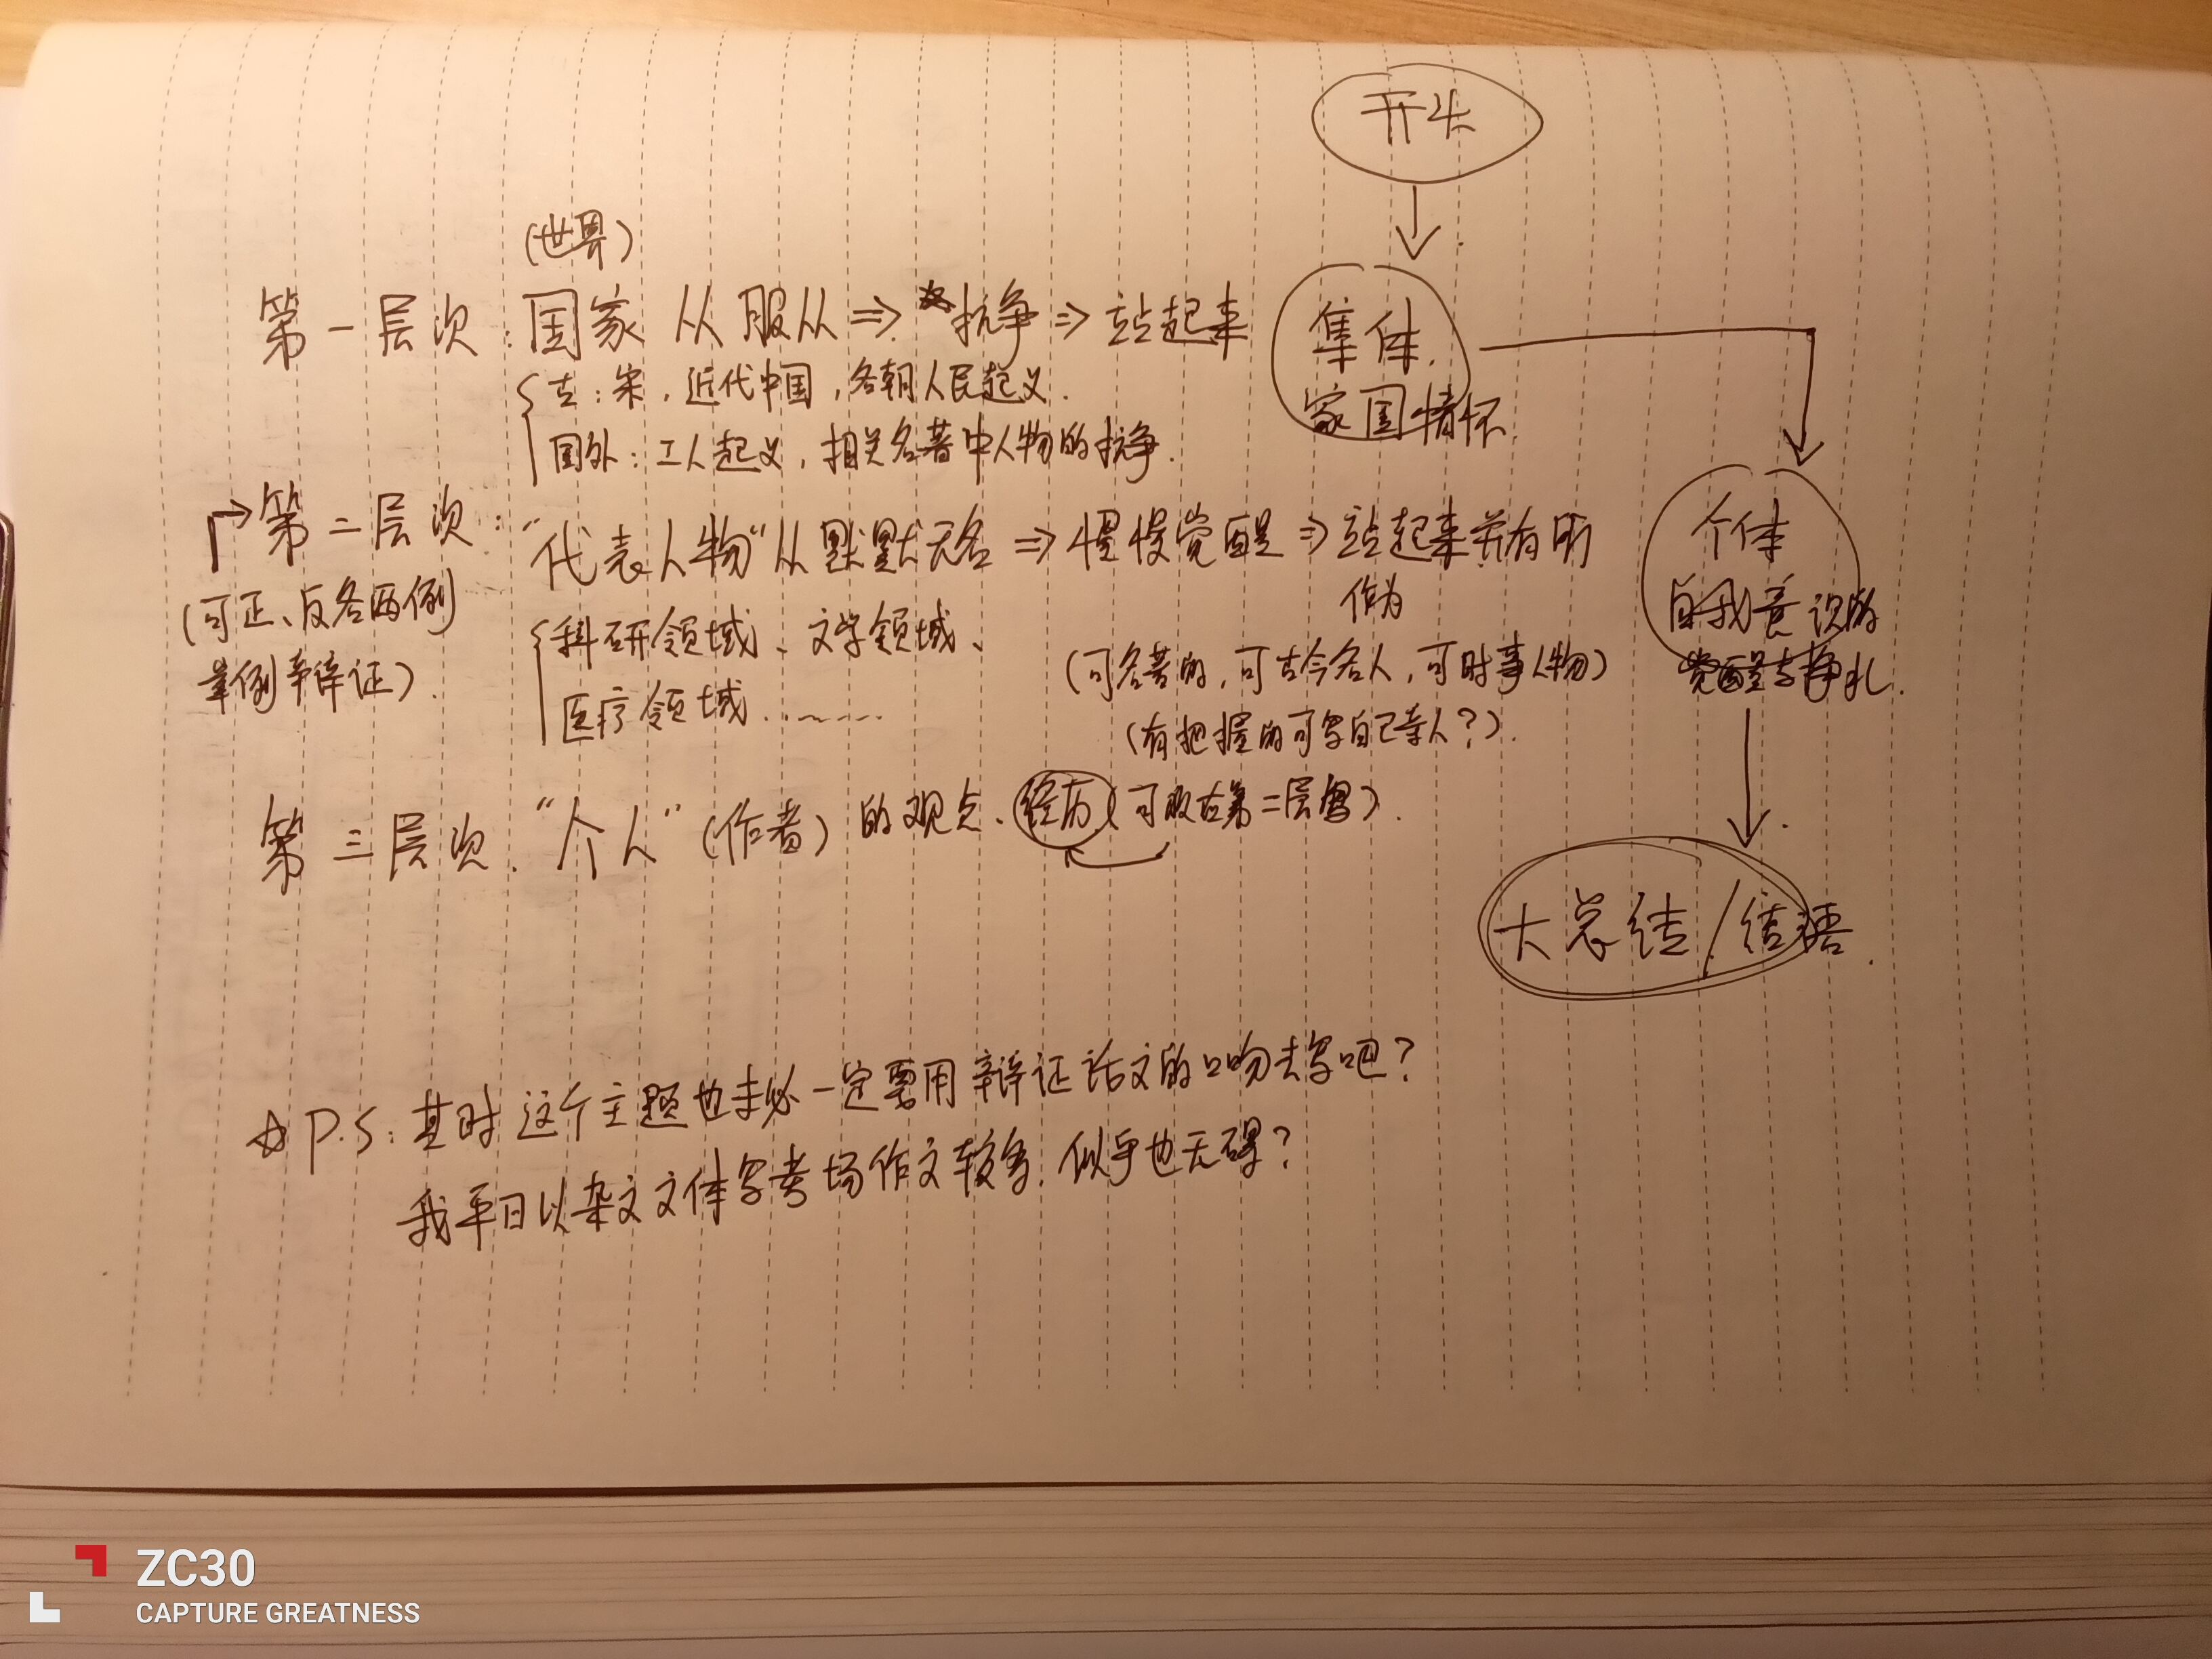 开头
(世界)
第一层次:国家 从 服从⇒抗争⇒站起来
集体.
家国情怀
古:宋,近代中国,各朝人民起义.
国外:工人起义,相关名著中人物的抗争.
第二层次:"代表人物"从默默无名⇒慢慢觉醒⇒站起来并有所
作为
(可正、反各两例
举例辩证).
科研领域、文学领域、
医疗领域......
(可名著的,可古今名人,可时事人物)
(有把握的可写自己亲人?).
个体
自我意识的
觉醒与挣扎.
第三层次."个人"(作者)的观点、经历(可放在第二层写).
大总结/结语.
☆P.S:其时这个主题也未必一定要用辩证话文的口吻去写吧?
我平日以杂文文体写考场作文较多.似乎也无碍?
ZC30
CAPTURE GREATNESS